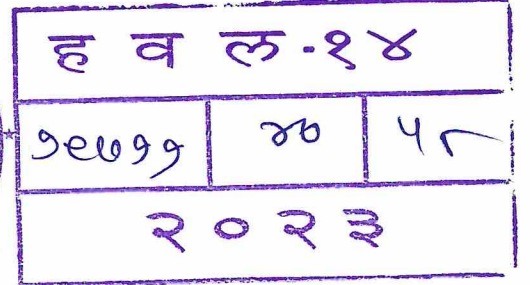 ह व ल-१४
१९७११ ४० ५८
२०२३